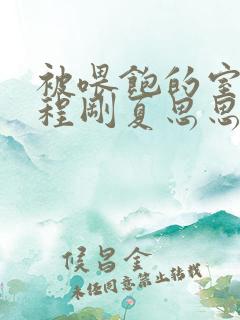 被喂饱的室
程刚夏思思
侯昌全
未经同意禁止转载